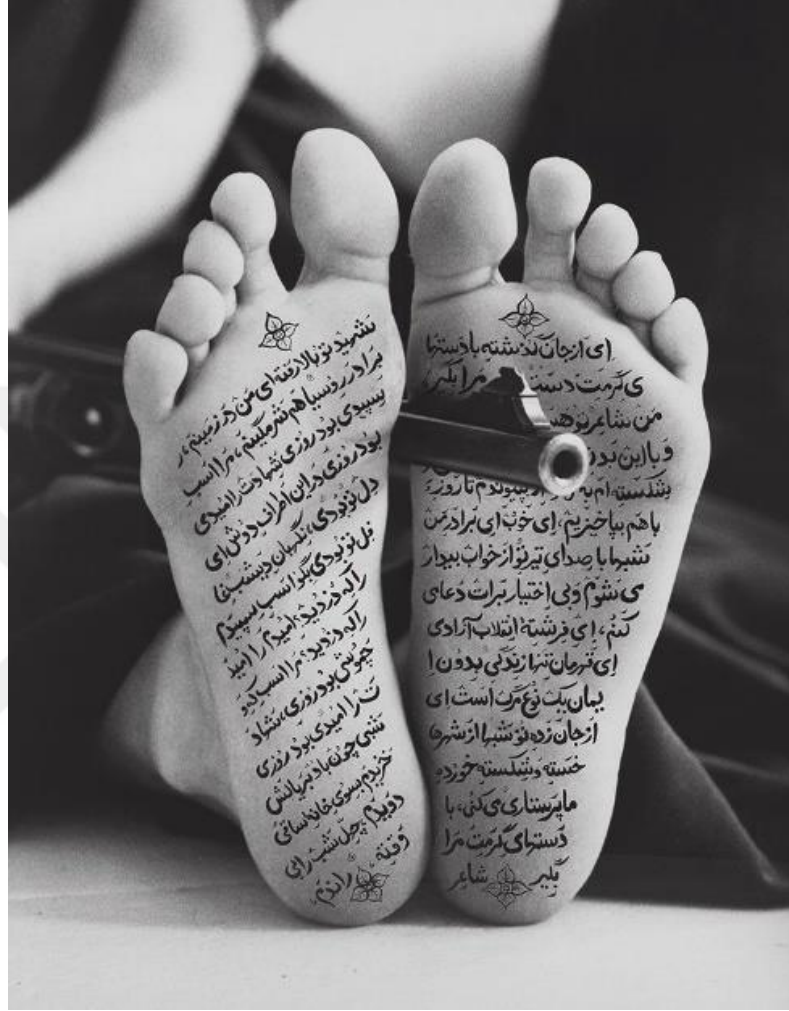 ای ازجان گذشته با دستها
ی گرمت دست مرا بگیر،
من شاعر تو هس
و با این بدن
شکسته‌ام به تا روزی
باهم بپاخیزیم، ای خوب ای برادر من
شبها با صدای تیر تو از خواب بیدار
می شوم و بی اختیار برات دعا می
کنم، ای فرشته انقلاب آزادی
ای قهرمان تنها زندگی بدون ا
یمان یک نوع مرگ است ای
ازجان زده تو شبها از شهرها
خسته و شکسته خورده
ما پرستاری می کنی، با
دستهای گرمت مرا
بگیر شاعر
شهید تو بالا رفته ای من در زمینم،
برادر روسیاهم شرمگینم، مرا اسب
سپیدی بود روزی شهادت را امیدی
بود روزی در این اطراف دوش ای
دل تو بودی، نگهبان دیشب
دل تو بودی بگو اسب سپیدم
را که دزدید؟ امیدم را امید
را که دزدید؟ مرا اسب
بود روزی، شهاد
ت را امیدی بود روزی
شبی چون باد بر یالش
خزیدم بسوی خانه ساقی
دویدم چهل شب را
راندم